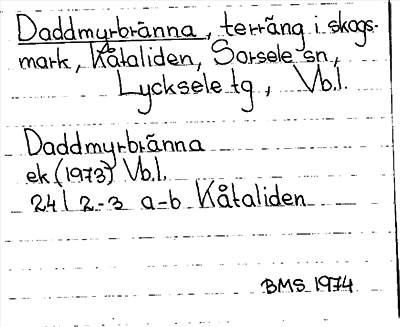 Daddmyrbränna, terräng i skogs-
mark, Kåtaliden, Sorsele sn,
Lycksele tg, Vb.l.
Daddmyrbränna
ek (1973) Vb.l.
24 I 2-3 a-b Kåtaliden
BMS 1974